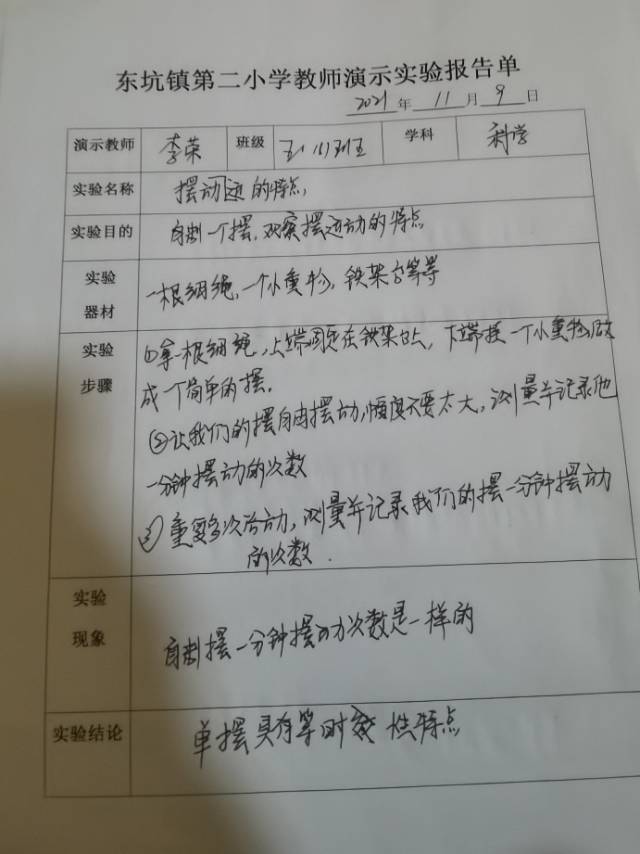 东坑镇第二小学教师演示实验报告单
2021 年 11 月 9 日
演示教师 李荣 班级 五(1)班 学科 科学
实验名称 摆动运的特点,
实验目的 自制一个摆,观察摆运动的特点
实验器材 一根细绳,一个小重物,铁架台等等
实验步骤 ①拿一根细绳,上端固定在铁架台上,下端接一个小重物,做
成一个简单的摆.
②让我们的摆自由摆动,幅度不要太大,测量并记录他
一分钟摆动的次数
③重复多次活动,测量并记录我们的摆一分钟摆动
的次数.
实验现象 自制摆一分钟摆动次数是一样的
实验结论 单摆具有等时性特点